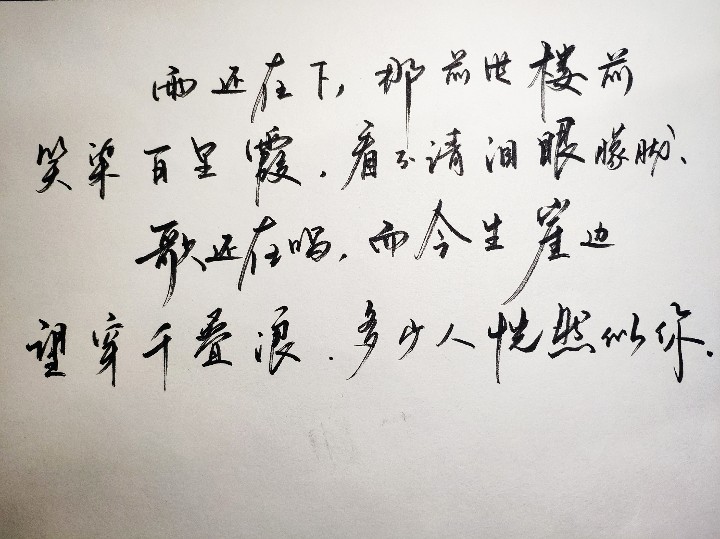 雨还在下，那前世楼前
笑染百里霞，看不清泪眼朦胧、
歌还在唱，而今生崖边
望穿千叠浪．多少人恍然似你．